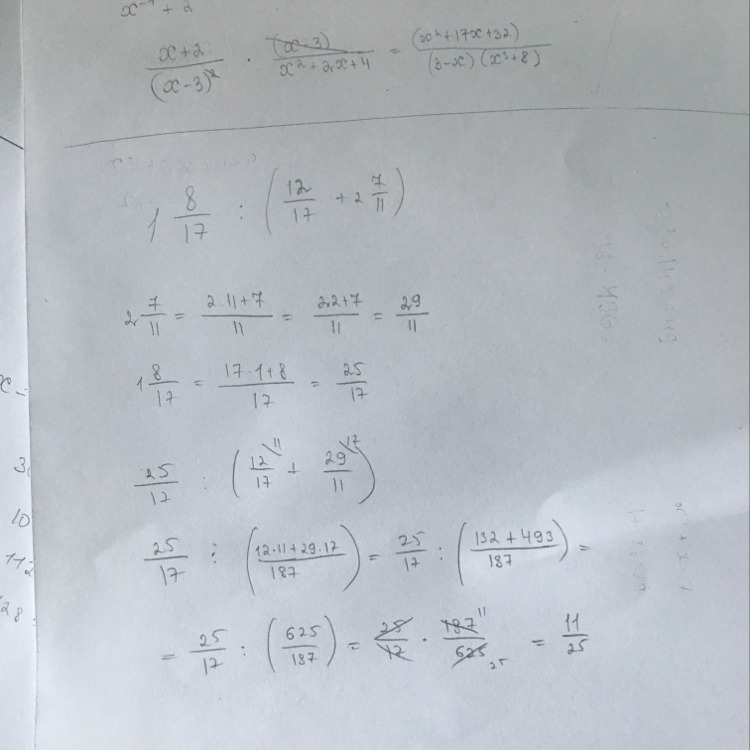 x⁻¹ + 2
(x+2)/(x-3)² · (x-3)/(x²+2x+4) = (x²+17x+32)/((3-x)(x³+8))
1 8/17 : (12/17 + 2 7/11)
2 7/11 = (2·11+7)/11 = (22+7)/11 = 29/11
1 8/17 = (17·1+8)/17 = 25/17
25/17 : (12/17 \11 + 29/11 \17)
25/17 : ((12·11+29·17)/187) = 25/17 : ((132+493)/187) =
= 25/17 : (625/187) = 25/17 · 187 11/625 25 = 11/25